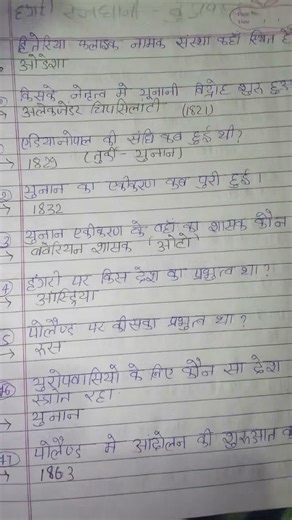 हितेरिया फलाइक नामक संस्था कहाँ स्थित है
→ ओडेशा
किसके नेतृत्व मे यूनानी विद्रोह शुरू हुआ
→ अलेक्जेंडर चिपसिलांटी (1821)
एड्रियानोपल की संधि कब हुई थी?
→ 1829 (तुर्की - युनान)
युनान का एकीकरण कब पुरी हुई।
→ 1832
3 युनान एकीकरण के वहाँ का शासक कौन
→ बवेरियन शासक 'ओटो'
4 हंगरी पर किस देश का प्रभुत्व था?
→ ऑस्ट्रिया
5 पोलैण्ड पर कीसका प्रभुत्व था?
→ रूस
16 युरोपवासियो के लिए कौन सा देश
स्त्रोत रहा
→ युनान
17 पोलैण्ड मे आंदोलन की शुरुआत
→ 1863